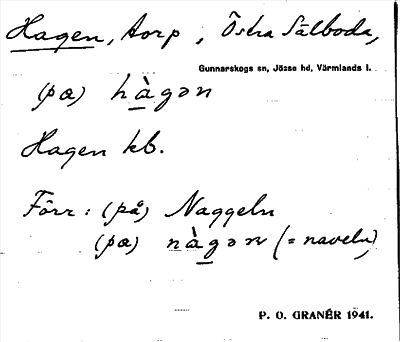 Hagen, torp, Östra Sälboda,
Gunnarskogs sn, Jösse hd, Värmlands l.
(pɑ) hàgən
Hagen kb.
Förr: (på) Naggeln
(pɑ) nàgən (= naveln)
P. O. GRANÉR 1941.